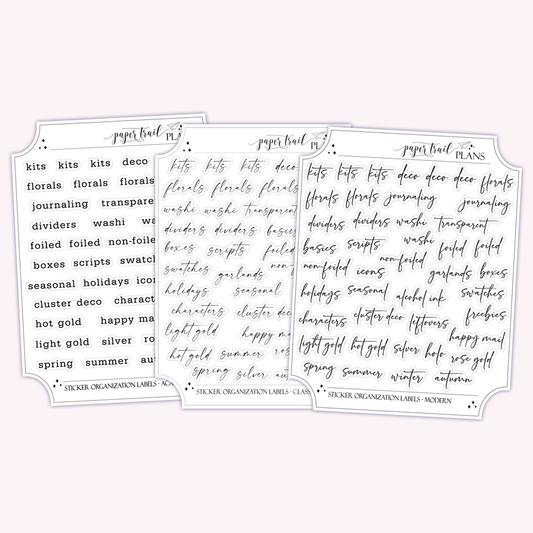 paper trail
PLANS
kits kits kits deco
florals florals florals
journaling transpare
dividers washi wa
foiled foiled non-foile
boxes scripts swatc
seasonal holidays ico
cluster deco charact
hot gold happy ma
light gold silver ro
spring summer au
STICKER ORGANIZATION LABELS · 
paper trail
kits kits kits deco
florals florals florals
washi washi transparent
dividers dividers basics
boxes scripts foiled
swatches garlands non-
holidays seasonal
characters cluster dec
light gold happy ma
hot gold summer ros
spring silver au
STICKER ORGANIZATION LABELS · CLAS
paper trail
PLANS
kits kits kits deco deco deco florals
florals florals journaling journaling
dividers dividers washi transparent
basics scripts washi foiled foiled
non-foiled icons non-foiled garlands boxes
holidays seasonal alcohol ink swatches
characters cluster deco leftovers freebies
light gold hot gold silver holo rose gold happy mail
spring summer winter autumn
STICKER ORGANIZATION LABELS · MODERN